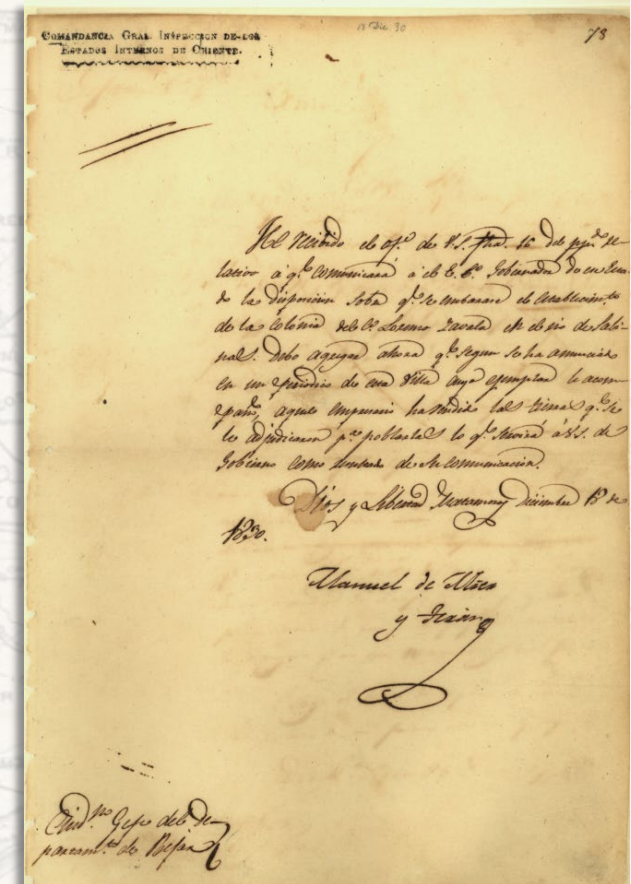 COMANDANCIA GRAL. INSPECCION DE LOS
ESTADOS INTERNOS DE ORIENTE.
13 Dic 30
78
He recibido el of.º de V.S. fha. 16 del pp.do re-
lativo á q.e comunicará á el E. S. Gobernador de ese Esta-
do la disposicion sobre q.e se embarace el establecim.to
de la Colonia del C. Lorenzo Zavala en el rio de Sabi-
nas. Debo agregar ahora q.e segun se ha anunciado
en un periodico de esa Villa cuyo ejemplar le acom-
paño, aquel empresario ha vendido las tierras q.e se
le adjudicaron p.a poblarlas lo q.e servirá á V.S. de
Gobierno como resultado de su comunicacion.
Dios y Libertad Diciembre 13 de
1830.
Manuel de Mier
y Terán
Ciud.no Gefe del De-
partam.to de Bejar